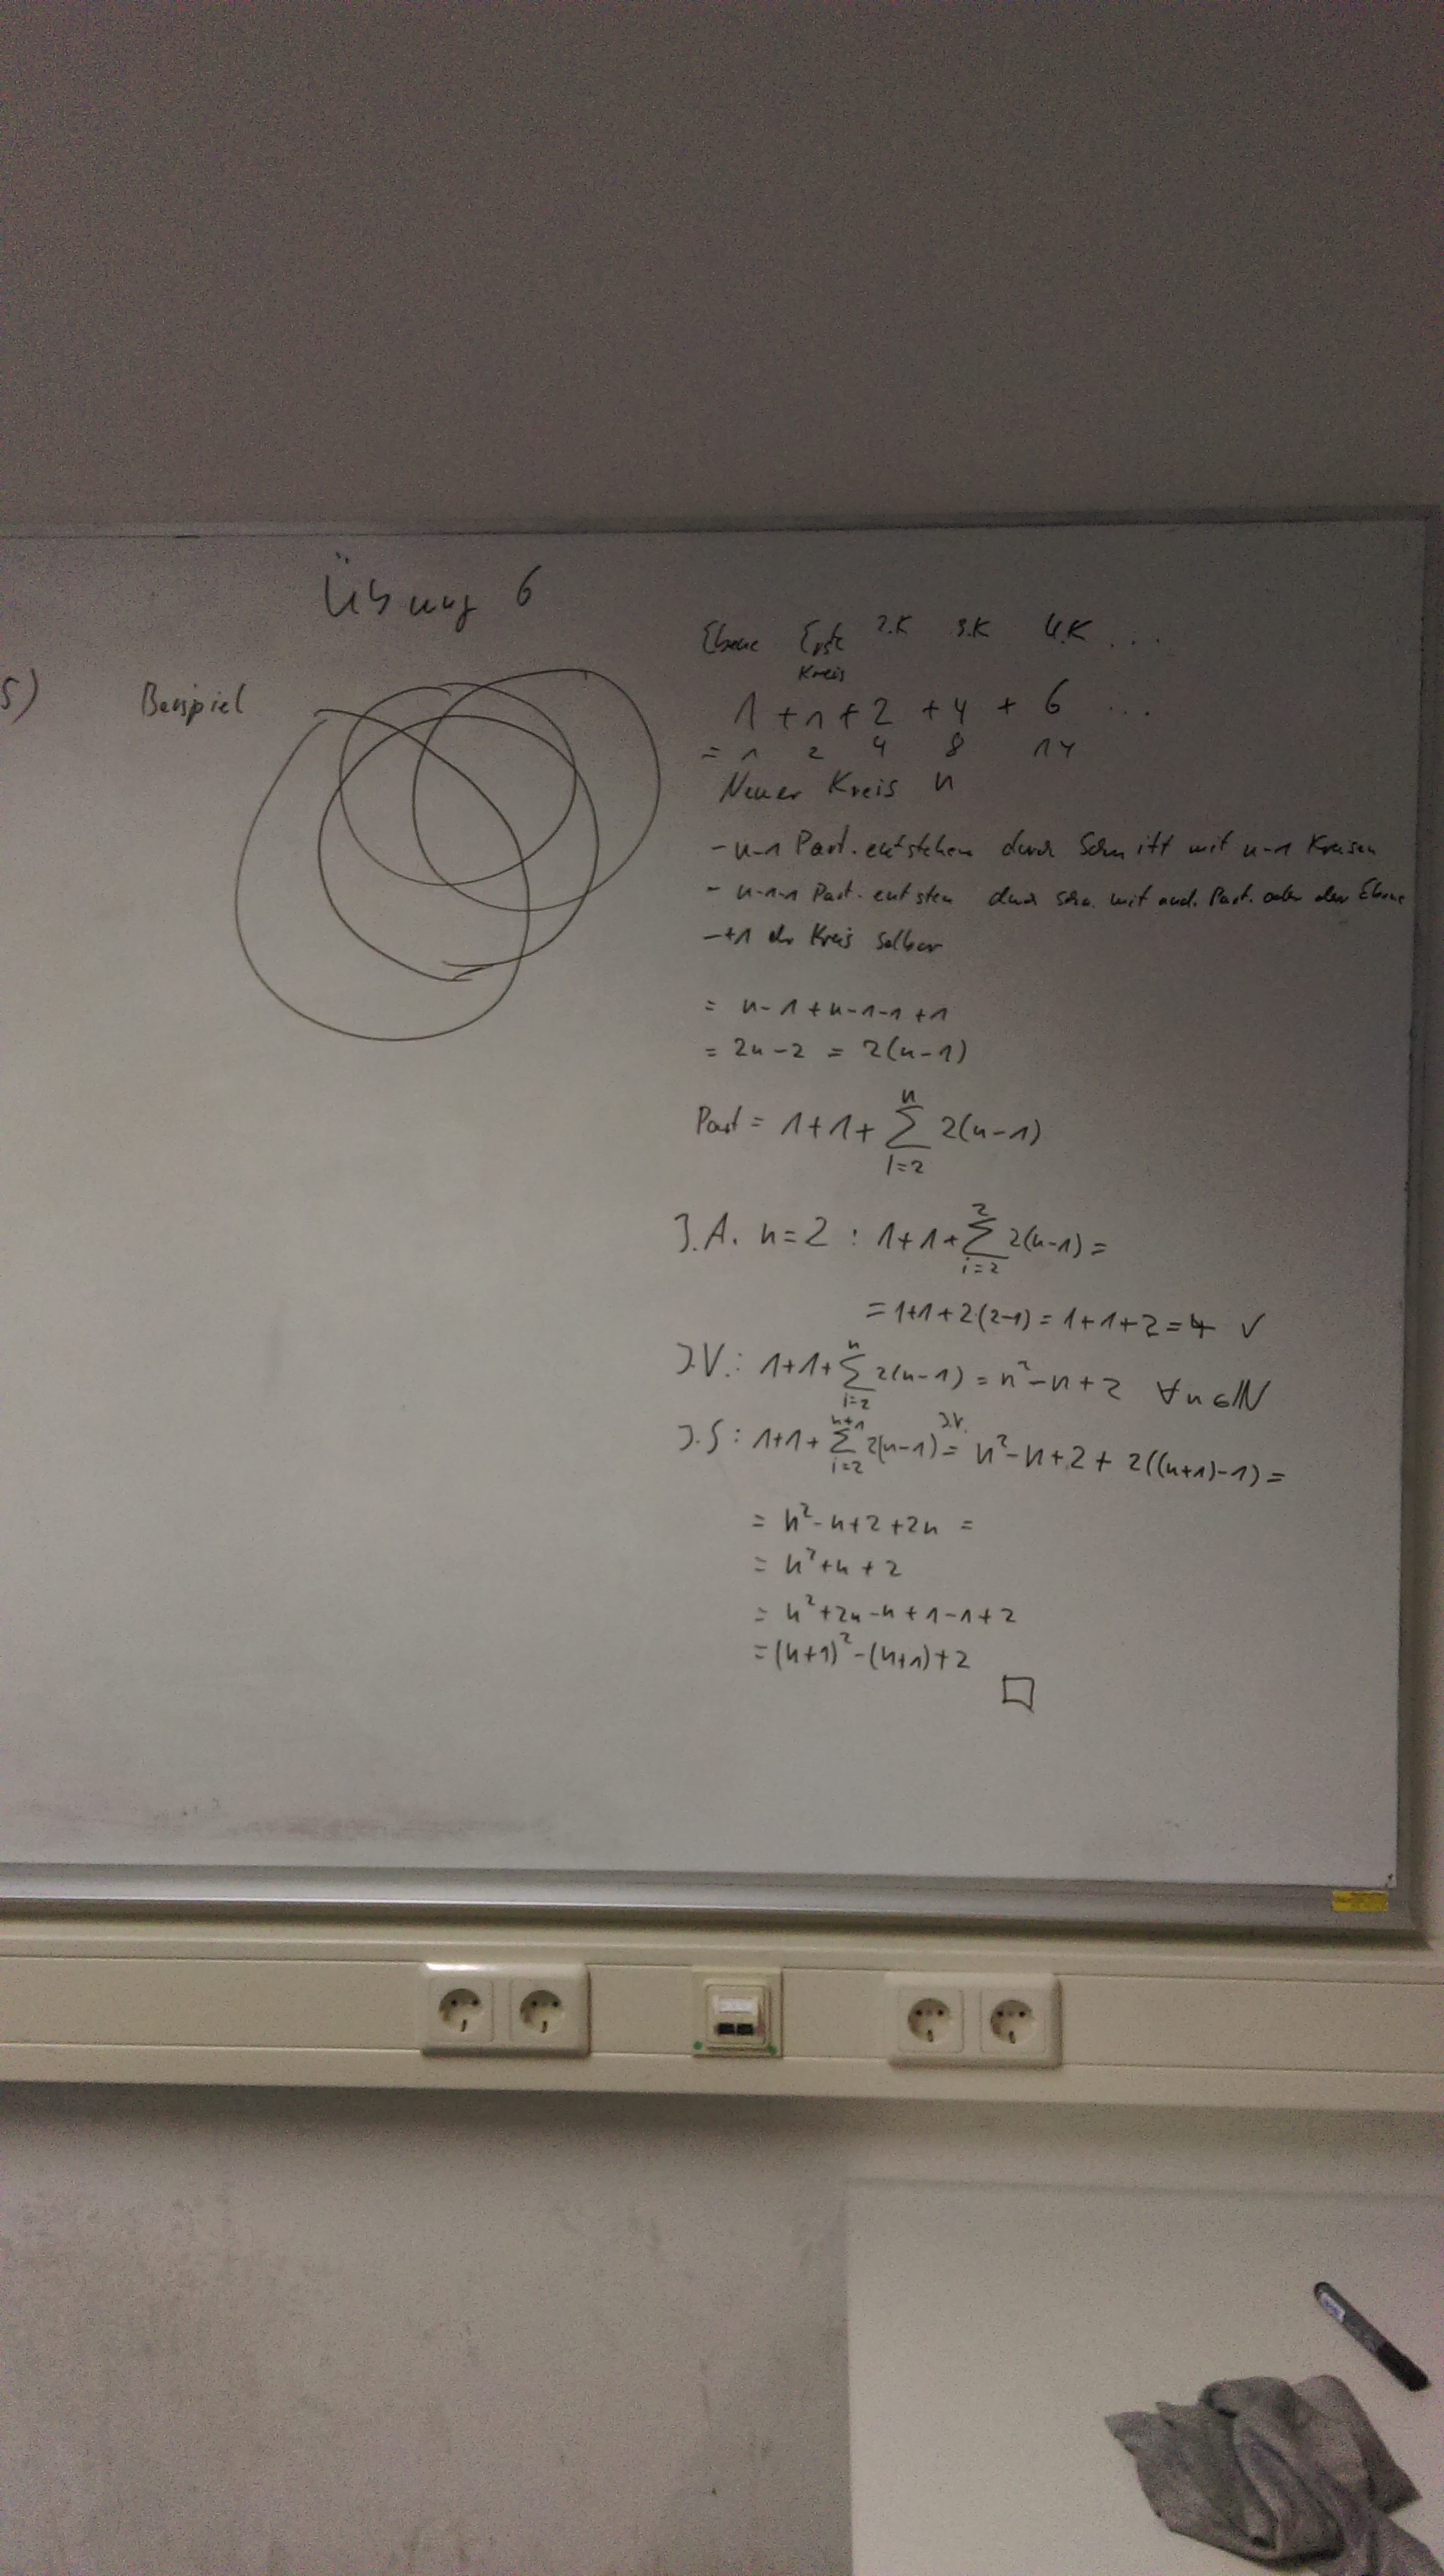 Übung 6
5) Beispiel
Ebene Erste 2.K 3.K 4.K ...
Kreis
1 + 1 + 2 + 4 + 6 ...
= 1 2 4 8 14
Neuer Kreis n
- n-1 Part. entstehen durch Schnitt mit n-1 Kreisen
- n-1-1 Part. entsten durch Schn. mit and. Part. oder der Ebene
- +1 der Kreis selber
= n-1+n-1-1+1
= 2n-2 = 2(n-1)
Part = 1+1+ ∑_{i=2}^{n} 2(n-1)
I.A. n=2 : 1+1+ ∑_{i=2}^{2} 2(n-1) =
= 1+1+2(2-1) = 1+1+2 = 4 ✓
I.V.: 1+1+ ∑_{i=2}^{n} 2(n-1) = n²-n+2 ∀n∈ℕ
I.S: 1+1+ ∑_{i=2}^{n+1} 2(n-1) =^{I.V.} n²-n+2+ 2((n+1)-1) =
= n²-n+2+2n =
= n²+n+2
= n²+2n-n+1-1+2
= (n+1)²-(n+1)+2
□